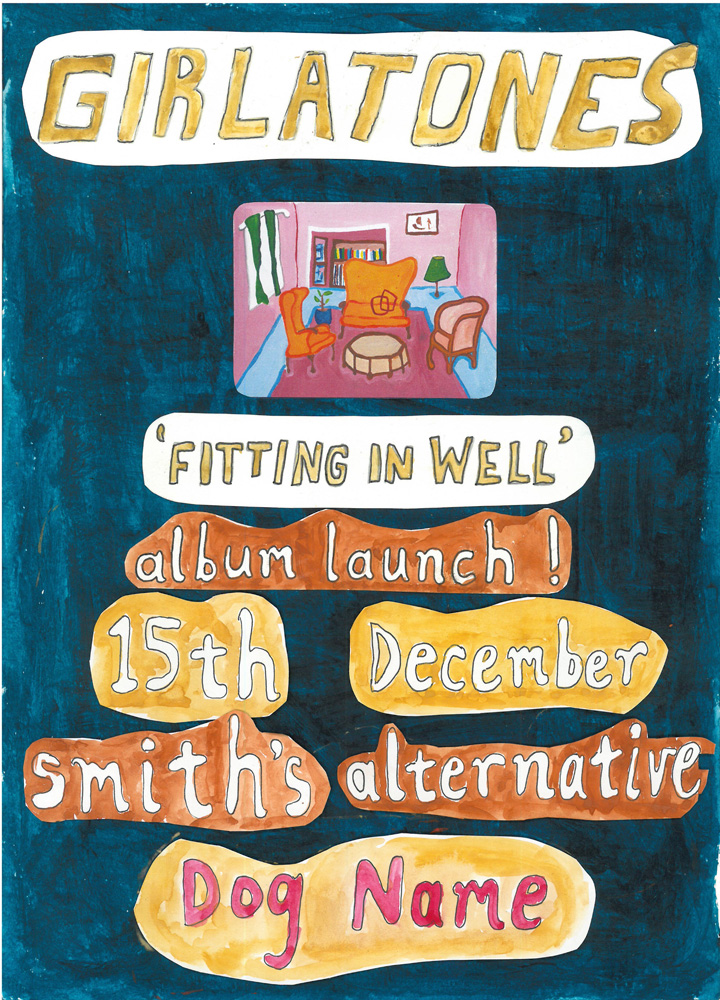 GIRLATONES
'FITTING IN WELL'
album launch !
15th December
smith's alternative
Dog Name